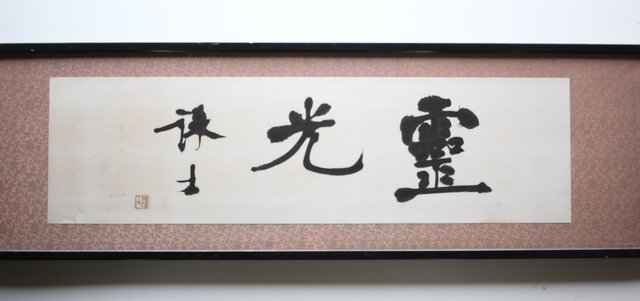 靈光
謙士